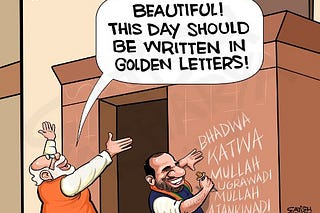 BEAUTIFUL!
THIS DAY SHOULD
BE WRITTEN IN
GOLDEN LETTERS!
BHADWA
KATWA
MULLAH
UGRAWADI
MULLAH
ATANKWADI
SATISH